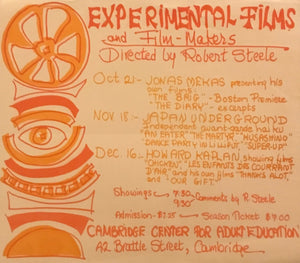 EXPERIMENTAL FILMS
and Film-Makers
Directed by Robert Steele
Oct 21- JONAS MEKAS presenting his
own films:
"THE BRIG" - Boston Premiere
"THE DIARY" - excerpts
Nov 18- JAPAN UNDERGROUND
independent avant-garde
"AN EATER", "THE MARTYR", "MUSASHINO"
"DANCE PARTY IN", "SUPER-UP"
Dec. 16- HOWARD KAPLAN, showing films
"CHICKEN", "LES ENFANTS DES COURRANT
D'AIR" and his own films "THANKS ALOT", and
"OUR GIFT."
Showings - 7:30 Comments by R. Steele
9:30
Admission - $1.25 - Season Ticket $
CAMBRIDGE CENTER FOR ADULT EDUCATION
42 Brattle Street, Cambridge